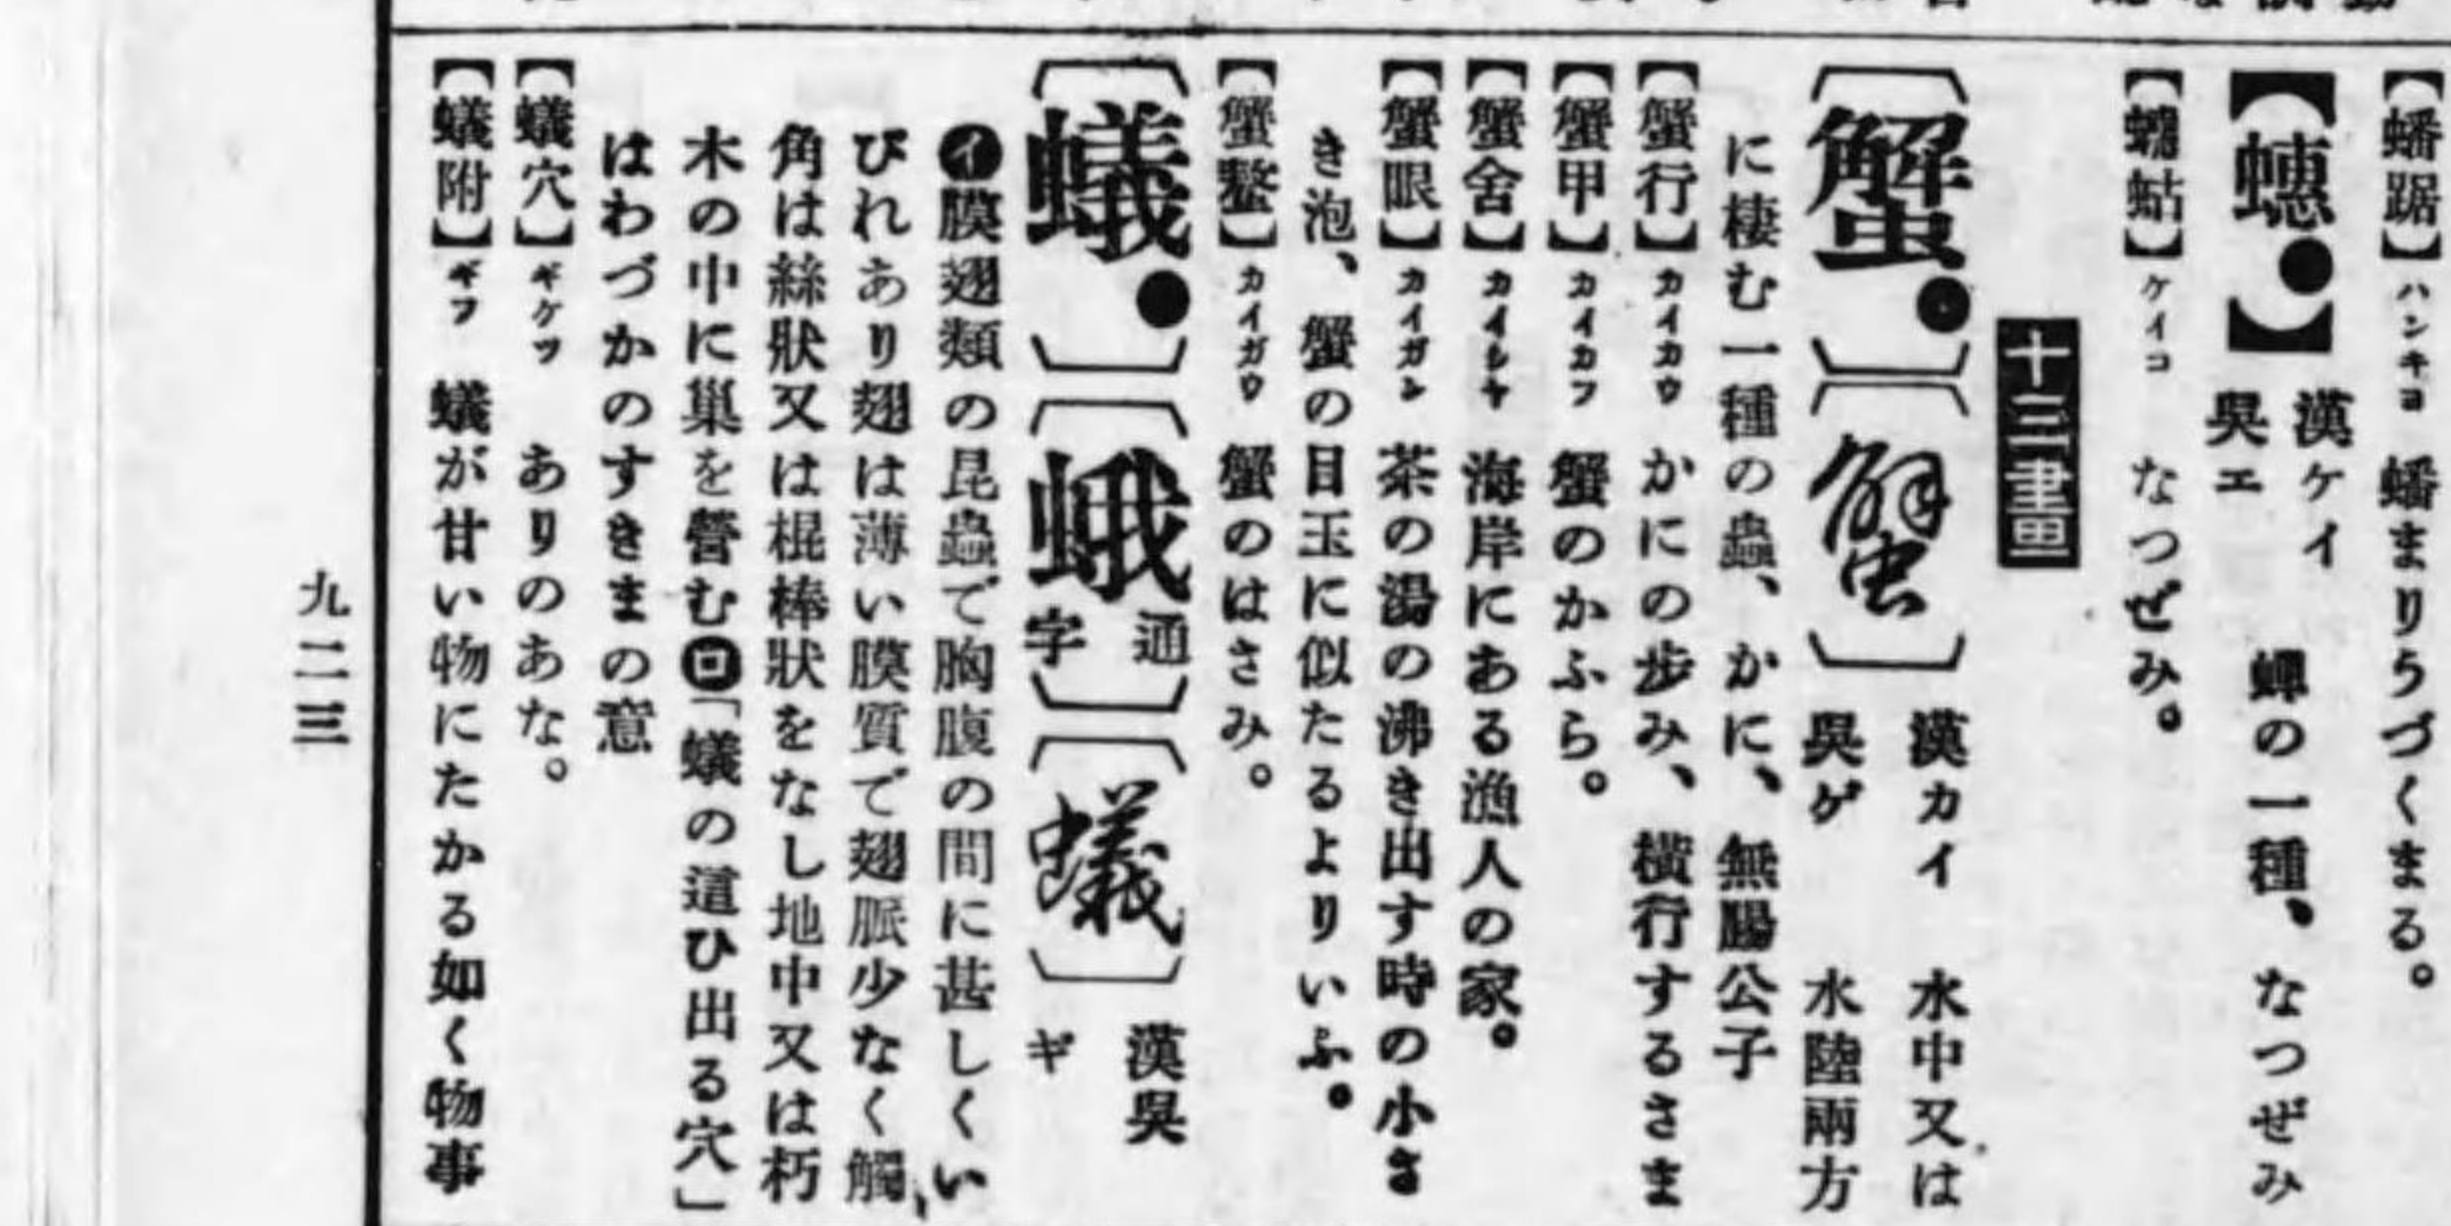 【蟠踞】ハンキヨ 蟠まりうづくまる。
【蟪●】漢ケイ 吳エ 蟬の一種、なつぜみ
【蟪蛄】ケイコ なつぜみ。
十三畫
〔蟹。●〕〔蟹〕漢カイ 吳ゲ 水中又は水陸兩方
に棲む一種の蟲、かに、無腸公子
【蟹行】カイカウ かにの步み、橫行するさま
【蟹甲】カイカフ 蟹のかふら。
【蟹舍】カイシヤ 海岸にある漁人の家。
【蟹眼】カイガン 茶の湯の沸き出す時の小さ
き泡、蟹の目玉に似たるよりいふ。
【蟹螯】カイガウ 蟹のはさみ。
〔蟻。●〕〔蛾通字〕〔蟻〕漢吳ギ
㋑膜翅類の昆蟲で胸腹の間に甚しくい
びれあり翅は薄い膜質で翅脈少なく觸
角は絲狀又は棍棒狀をなし地中又は朽
木の中に巢を營む㋺「蟻の道ひ出る穴」
はわづかのすきまの意
【蟻穴】ギケツ ありのあな。
【蟻附】ギフ 蟻が甘い物にたかる如く物事
九二三